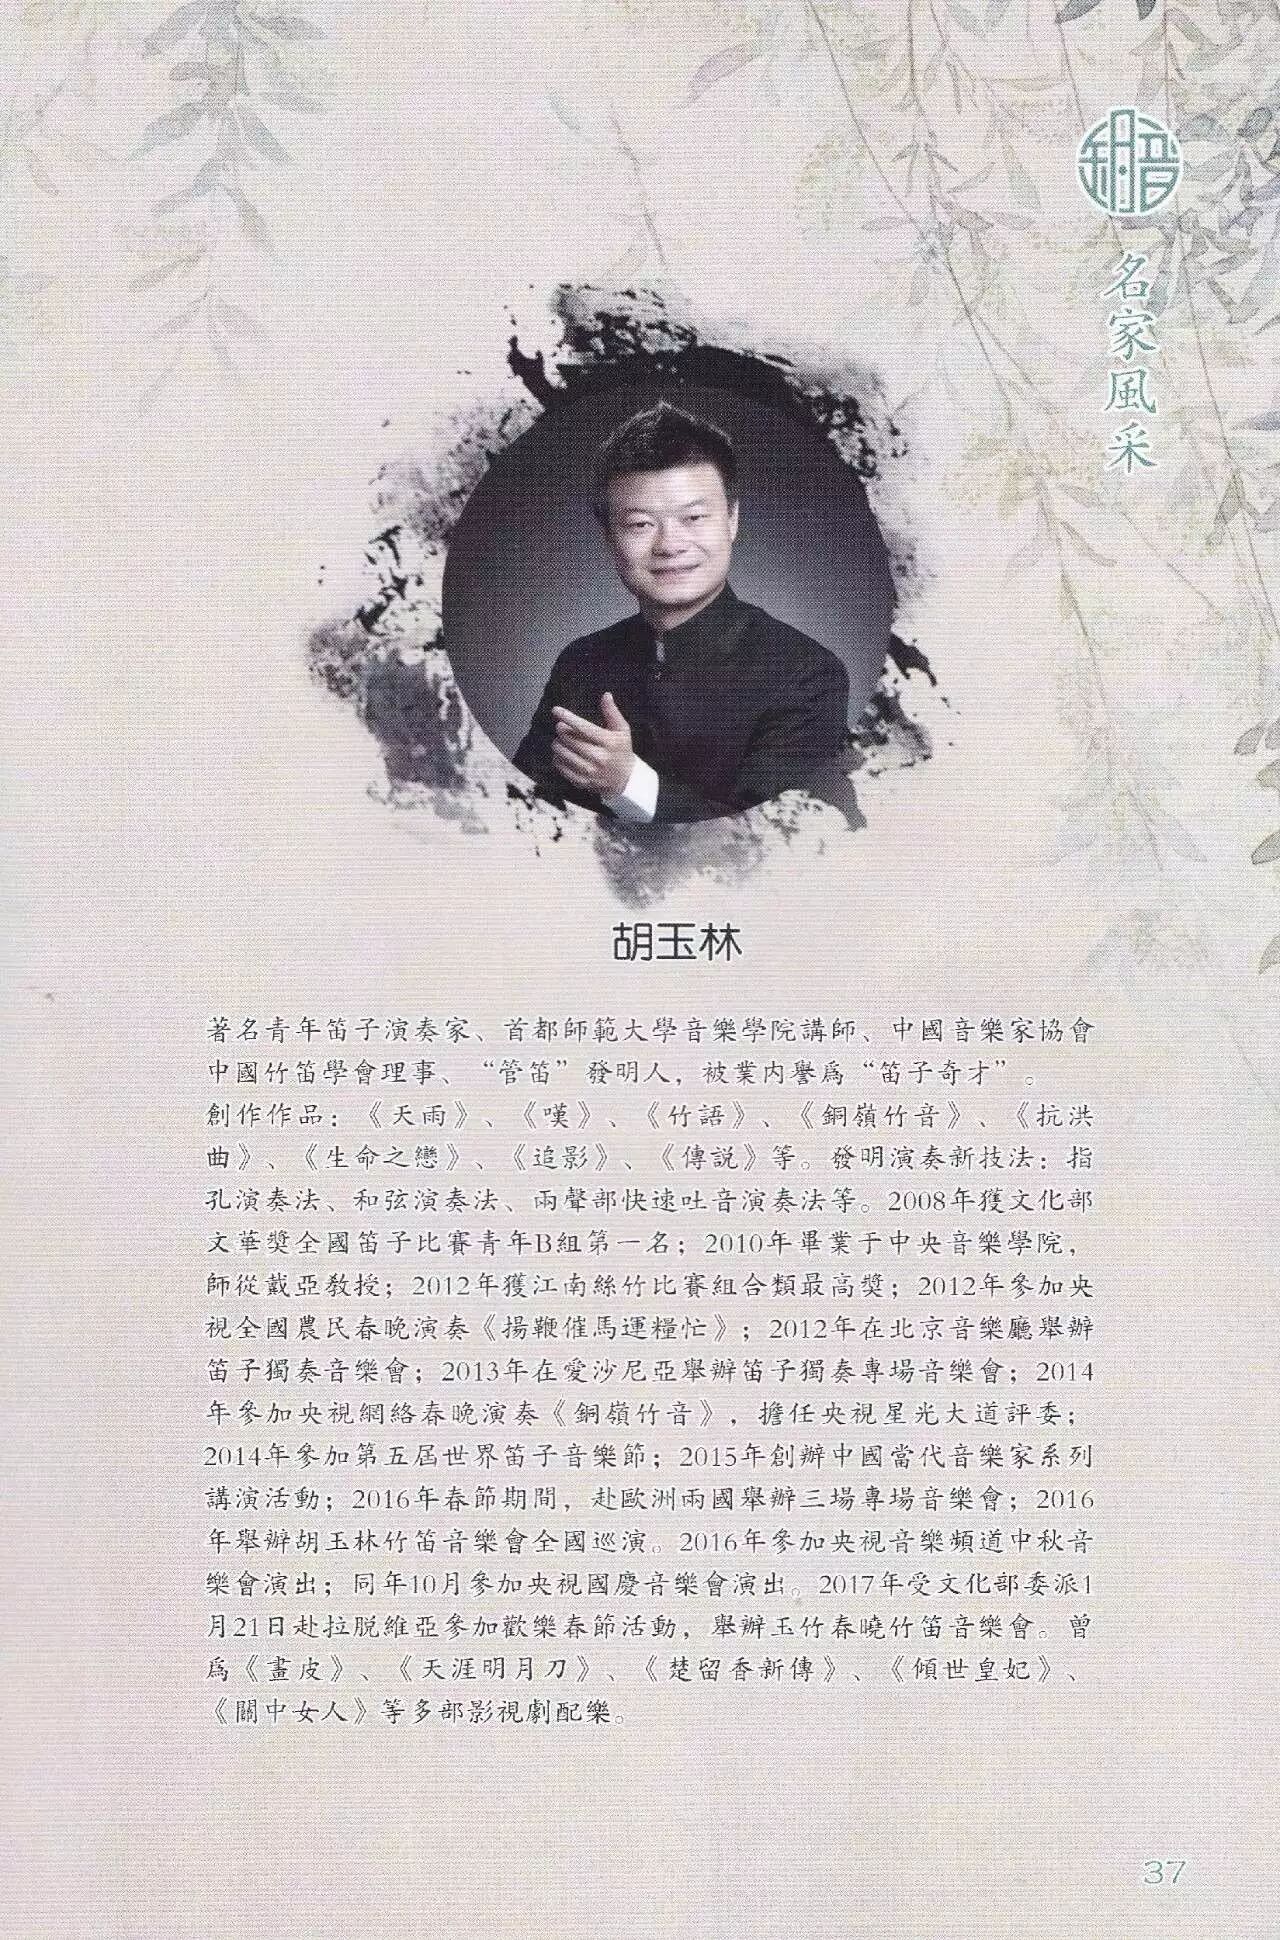 銅音
名家風采
胡玉林
著名青年笛子演奏家、首都師範大學音樂學院講師、中國音樂家協會
中國竹笛學會理事、“管笛”發明人，被業内譽爲“笛子奇才”。
創作作品：《天雨》、《嘆》、《竹語》、《銅嶺竹音》、《抗洪
曲》、《生命之戀》、《追影》、《傳説》等。發明演奏新技法：指
孔演奏法、和弦演奏法、兩聲部快速吐音演奏法等。2008年獲文化部
文華獎全國笛子比賽青年B組第一名；2010年畢業于中央音樂學院，
師從戴亞教授；2012年獲江南絲竹比賽組合類最高獎；2012年參加央
視全國農民春晚演奏《揚鞭催馬運糧忙》；2012年在北京音樂廳舉辦
笛子獨奏音樂會；2013年在愛沙尼亞舉辦笛子獨奏專場音樂會；2014
年參加央視網絡春晚演奏《銅嶺竹音》，擔任央視星光大道評委；
2014年參加第五屆世界笛子音樂節；2015年創辦中國當代音樂家系列
講演活動；2016年春節期間，赴歐洲兩國舉辦三場專場音樂會；2016
年舉辦胡玉林竹笛音樂會全國巡演。2016年參加央視音樂頻道中秋音
樂會演出；同年10月參加央視國慶音樂會演出。2017年受文化部委派1
月21日赴拉脱維亞參加歡樂春節活動，舉辦玉竹春曉竹笛音樂會。曾
爲《畫皮》、《天涯明月刀》、《楚留香新傳》、《傾世皇妃》、
《關中女人》等多部影視劇配樂。
37